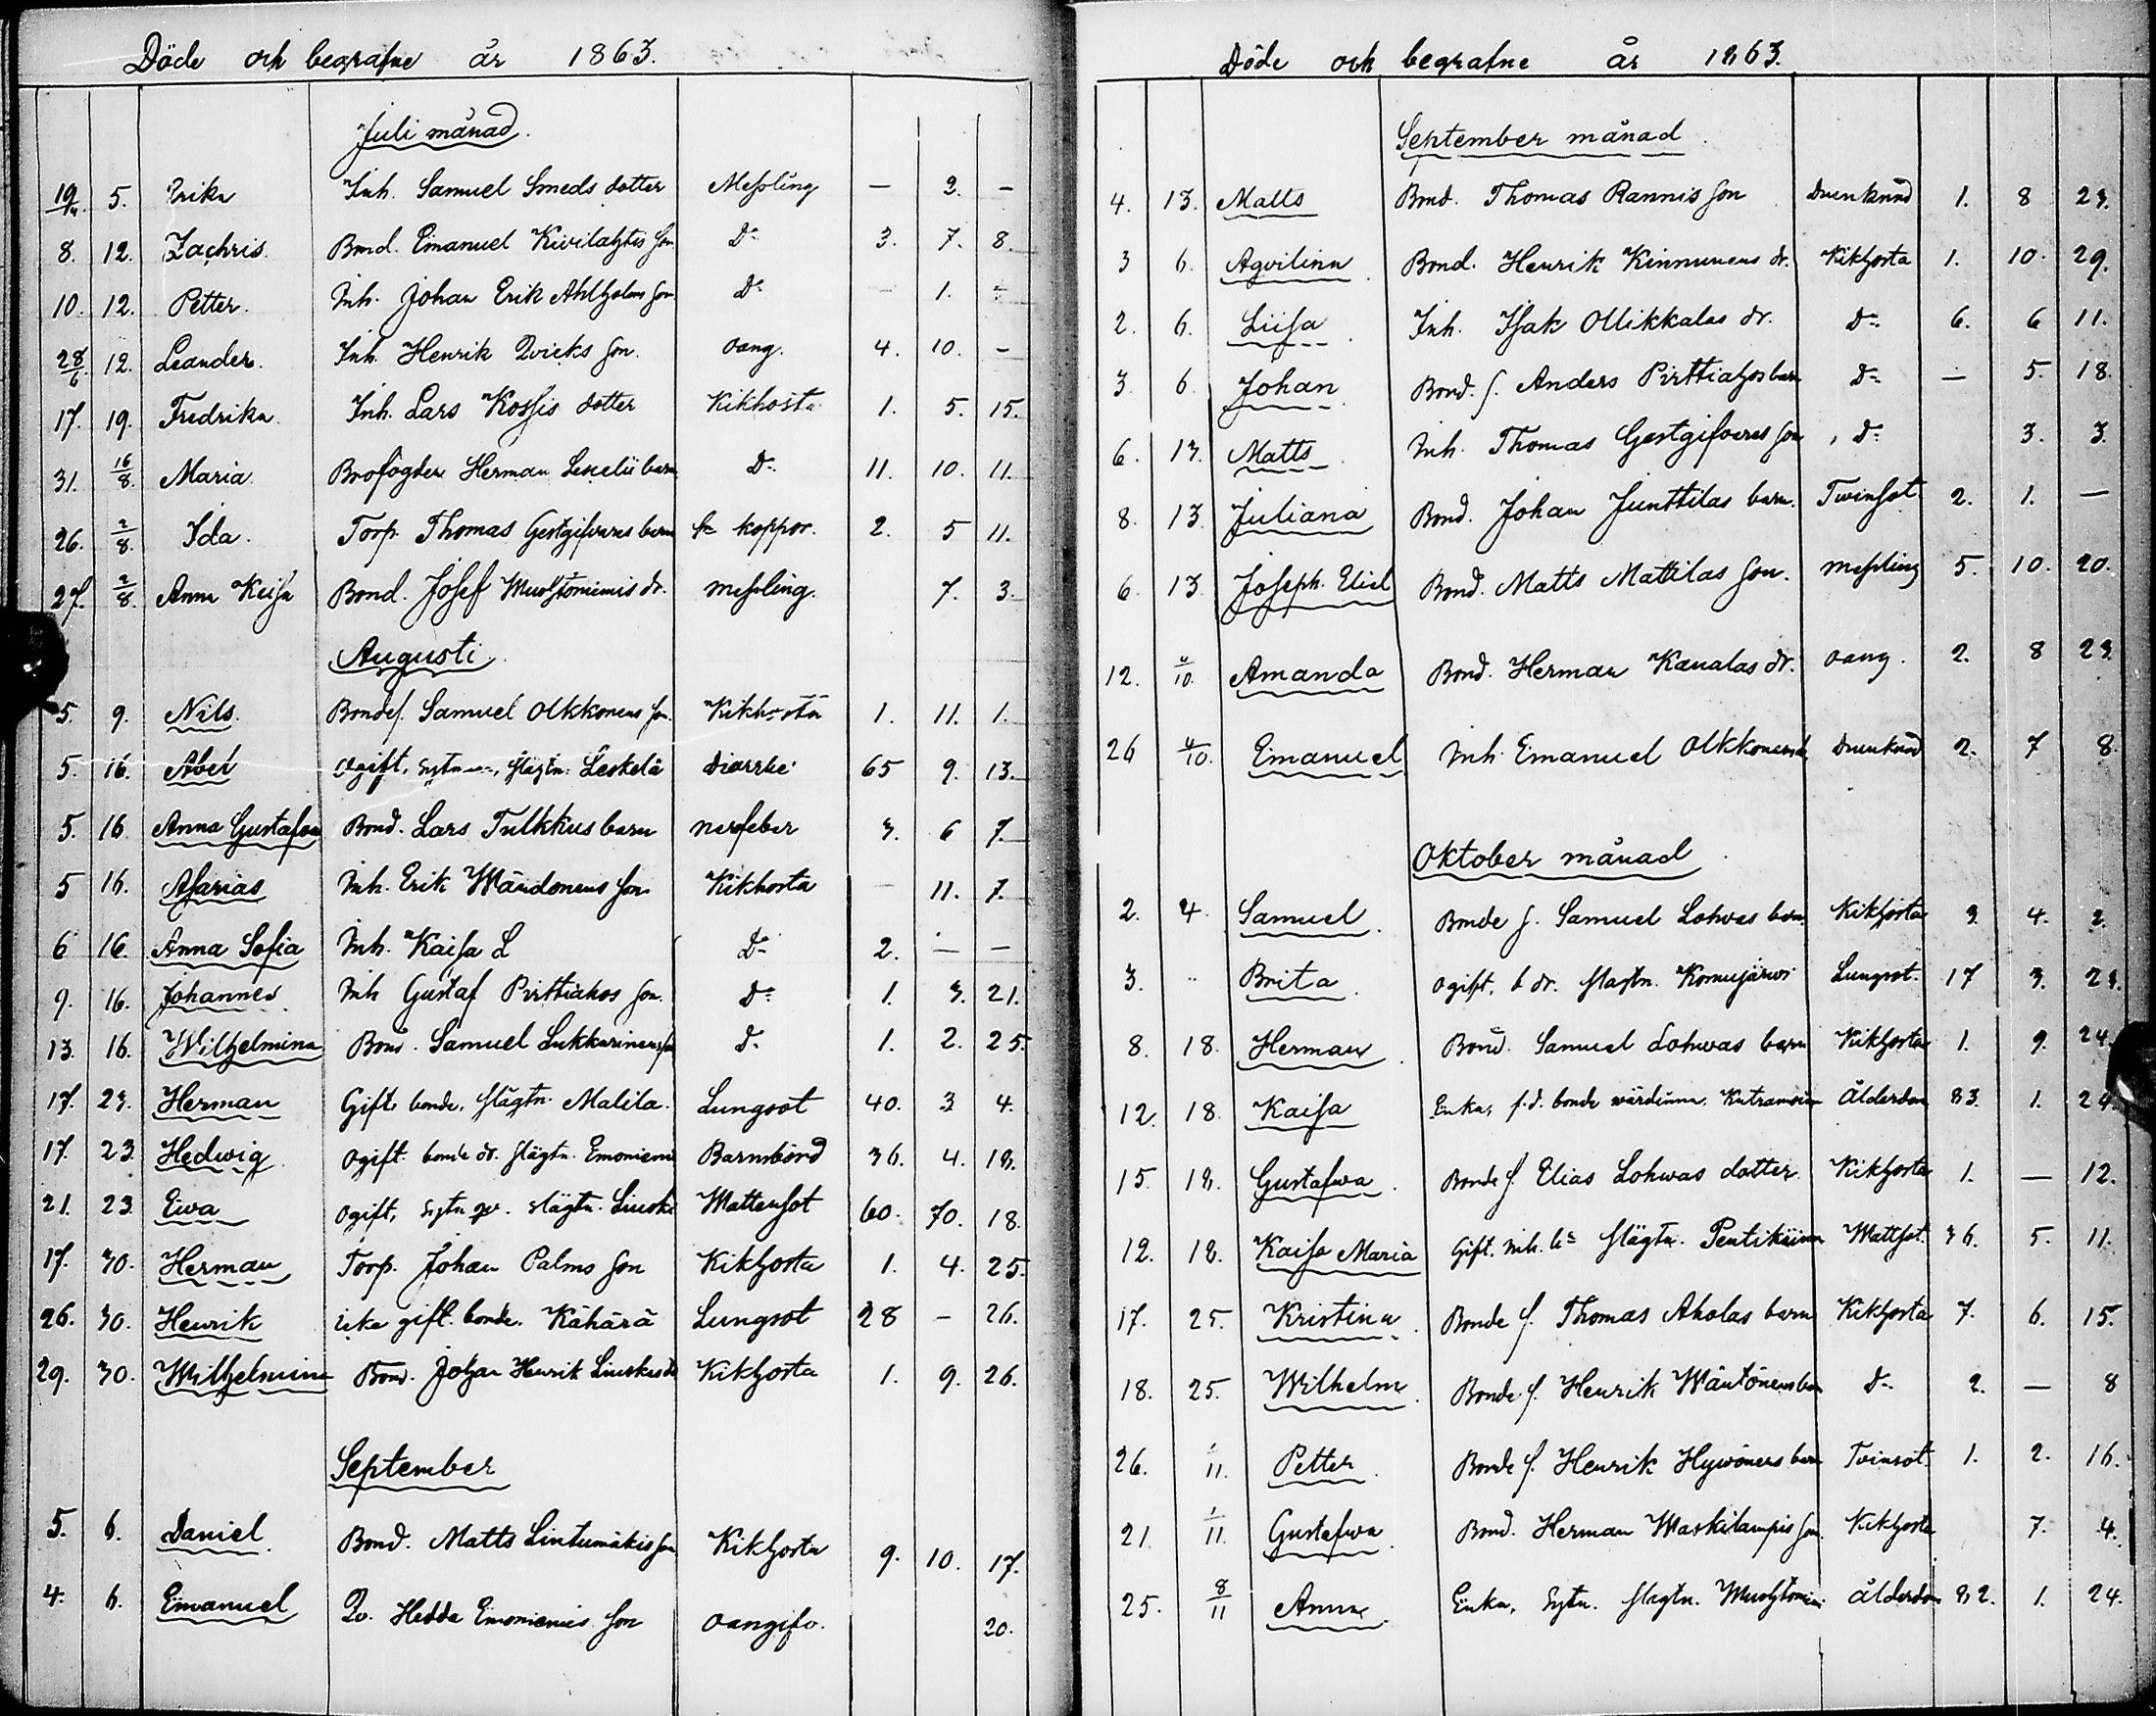 Döde och begrafne år 1863.
Juli månad.
19/4. 5. Erika Inh. Samuel Smeds dotter Messling — 2. —
8. 12. Zachris. Bond. Emanuel Kivilahtis son D:o 3. 7. 8.
10. 12. Petter. Inh. Johan Erik Ahlholms son D:o — 1. —
28/6. 12. Leander. Inh. Henrik Qvicks son. oang. 4. 10. —
17. 19. Fredrika. Inh. Lars Kossis dotter Kikhosta 1. 5. 15.
31. 16/8. Maria. Brofogden Herman barn D:o 11. 10. 11.
26. 2/8. Ida. Torp. Thomas Gestgifvares barn koppor. 2. 5 11.
27. 2/8. Anna Kaisa Bond. Josef Mustoniemis dr. messling. 7. 3.
Augusti.
5. 9. Nils. Bondes. Samuel Olkkonens son. Kikhosta 1. 11. 1.
5. 16. Abel ogift, slägtn. Leskelä diarrhe 65 9. 13.
5. 16. Anna Gustafva Bond. Lars Tulkkus barn nerffeber 3. 6 7.
5 16. Asarias Inh. Erik Wändonens son Kikhosta — 11. 7.
6 16. Anna Sofia Inh. Kaisa L D:o 2. — —
9. 16. Johannes. Inh Gustaf Pirttiahos son. D:o 1. 3. 21.
13. 16. Wilhelmina Bond. Samuel Lukkarinens D:o 1. 2. 25.
17. 23. Herman Gift, bonde, slägtn. Malila. Lungsot 40. 3 4.
17. 23. Hedwig ogift. bonde dr. slägtn. Emoniemi Barnsbörd 36. 4. 18.
21. 23. Ewa ogift, slägtn. Liuski Wattensot 60. 70. 18.
17. 30. Herman Torp. Johan Palms son Kikhosta 1. 4. 25.
26. 30. Henrik icke gift. bonde. Kähärä Lungsot 28 — 26.
29. 30. Wilhelmina Bond. Johan Henrik Liuskus dr Kikhosta 1. 9. 26.
September
5. 6. Daniel. Bond. Matts Lintumäkis son Kikhosta 9. 10. 17.
4. 6. Emanuel Qv. Hedda Emoniemis son oangifv. 20.
Döde och begrafne år 1863.
September månad.
4. 13. Matts Bond. Thomas Rannis son 1. 8 23.
3 6. Aqvilina Bond. Henrik Kinnunens dr. Kikhosta 1. 10. 29.
2. 6. Liisa. Inh. Isak Ollikkalas dr. D:o 6. 6 11.
3. 6. Johan Bond. s. Anders Pirttiahos barn D:o — 5. 18.
6. 13. Matts Inh. Thomas Gestgifvares son D:o 3. 3.
8. 13. Juliana Bond. Johan Junttilas barn. Tvinsot. 2. 1. —
6. 13 Joseph Eliel Bond. Matts Mattilas son. messling 5. 10. 20.
12. 4/10. Amanda Bond. Herman Kaualas dr. oang. 2. 8 23.
26 4/10. Emanuel Inh. Emanuel Olkkonens 2. 7 8.
Oktober månad.
2. 4. Samuel. Bonde s. Samuel Lohvas barn Kikhosta 3. 4. 2.
3. " Brita. ogift. b. dr. slägtn. Komujärvi Lungsot. 17 3. 23.
8. 18. Herman. Bond. Samuel Lohwas barn Kikhosta 1. 9. 24.
12. 18. Kaisa Enka, f.d. bonde wärdinna Ålderdom 83. 1. 24.
15. 18. Gustafwa. Bonde s. Elias Lohwas dotter. Kikhosta 1. — 12.
12. 18. Kaisa Maria Gift. inh. slägtn. Wattsot. 36. 5. 11.
17. 25. Kristina. Bonde s. Thomas Aholas barn Kikhosta 7. 6. 15.
18. 25. Wilhelm. Bonde. s. Henrik Wäntönens barn D:o 2. — 8
26. 1/11. Petter. Bonde s. Henrik Hyvönens barn Tvinsot. 1. 2. 16.
21. 1/11. Gustafwa. Bond. Herman Waskilampis Kikhosta 7. 4.
25. 8/11 Anna. Enka, slägtn. Ålderdom 82. 1. 24.